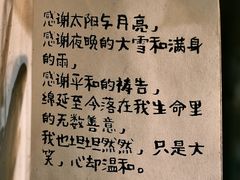 感谢太阳与月亮，
感谢夜晚的大雪和满身
的雨，
感谢平和的祷告，
绵延至今落在我生命里
的无数善意，
我也坦坦然然，只是大
笑，心却温和。